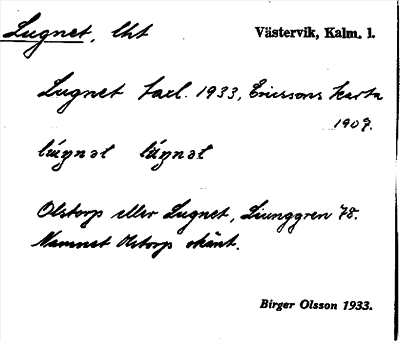 Lugnet, lht Västervik, Kalm. l.
Lugnet taxl. 1933, Ericssons karta
1907.
lúŋnət lùŋnət
Olstorp eller Lugnet, Ljunggren 78.
Namnet Olstorp okänt.
Birger Olsson 1933.